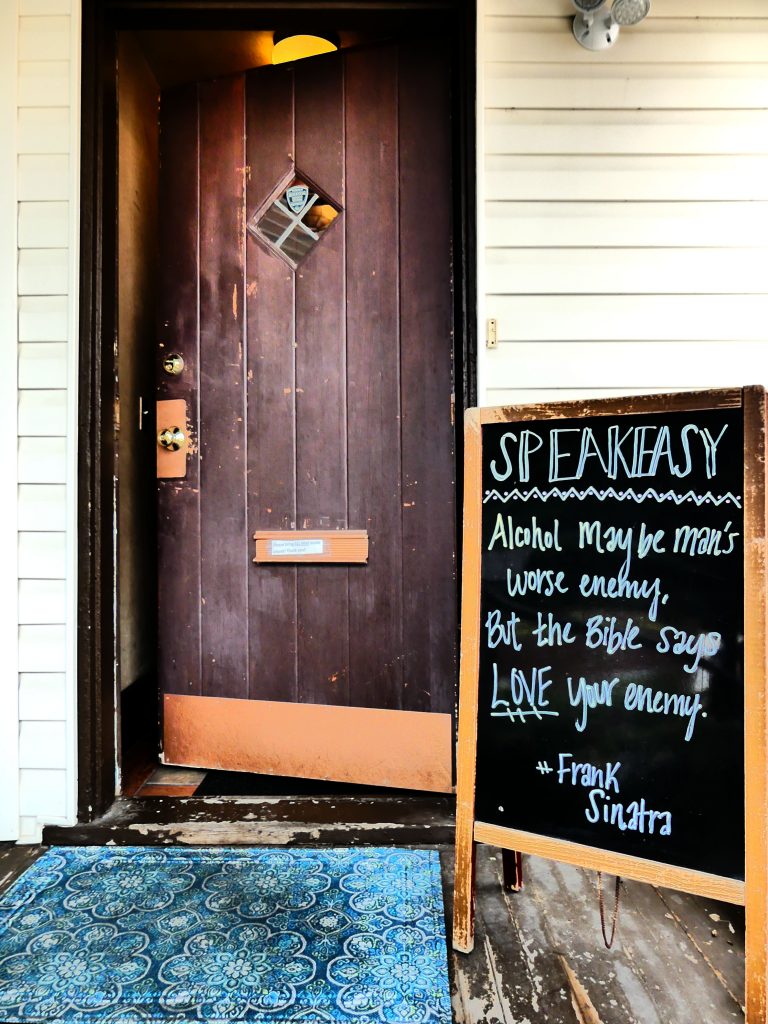 SPEAKEASY
Alcohol May be man's
worse enemy,
But the Bible says
LOVE your enemy.
#Frank
Sinatra